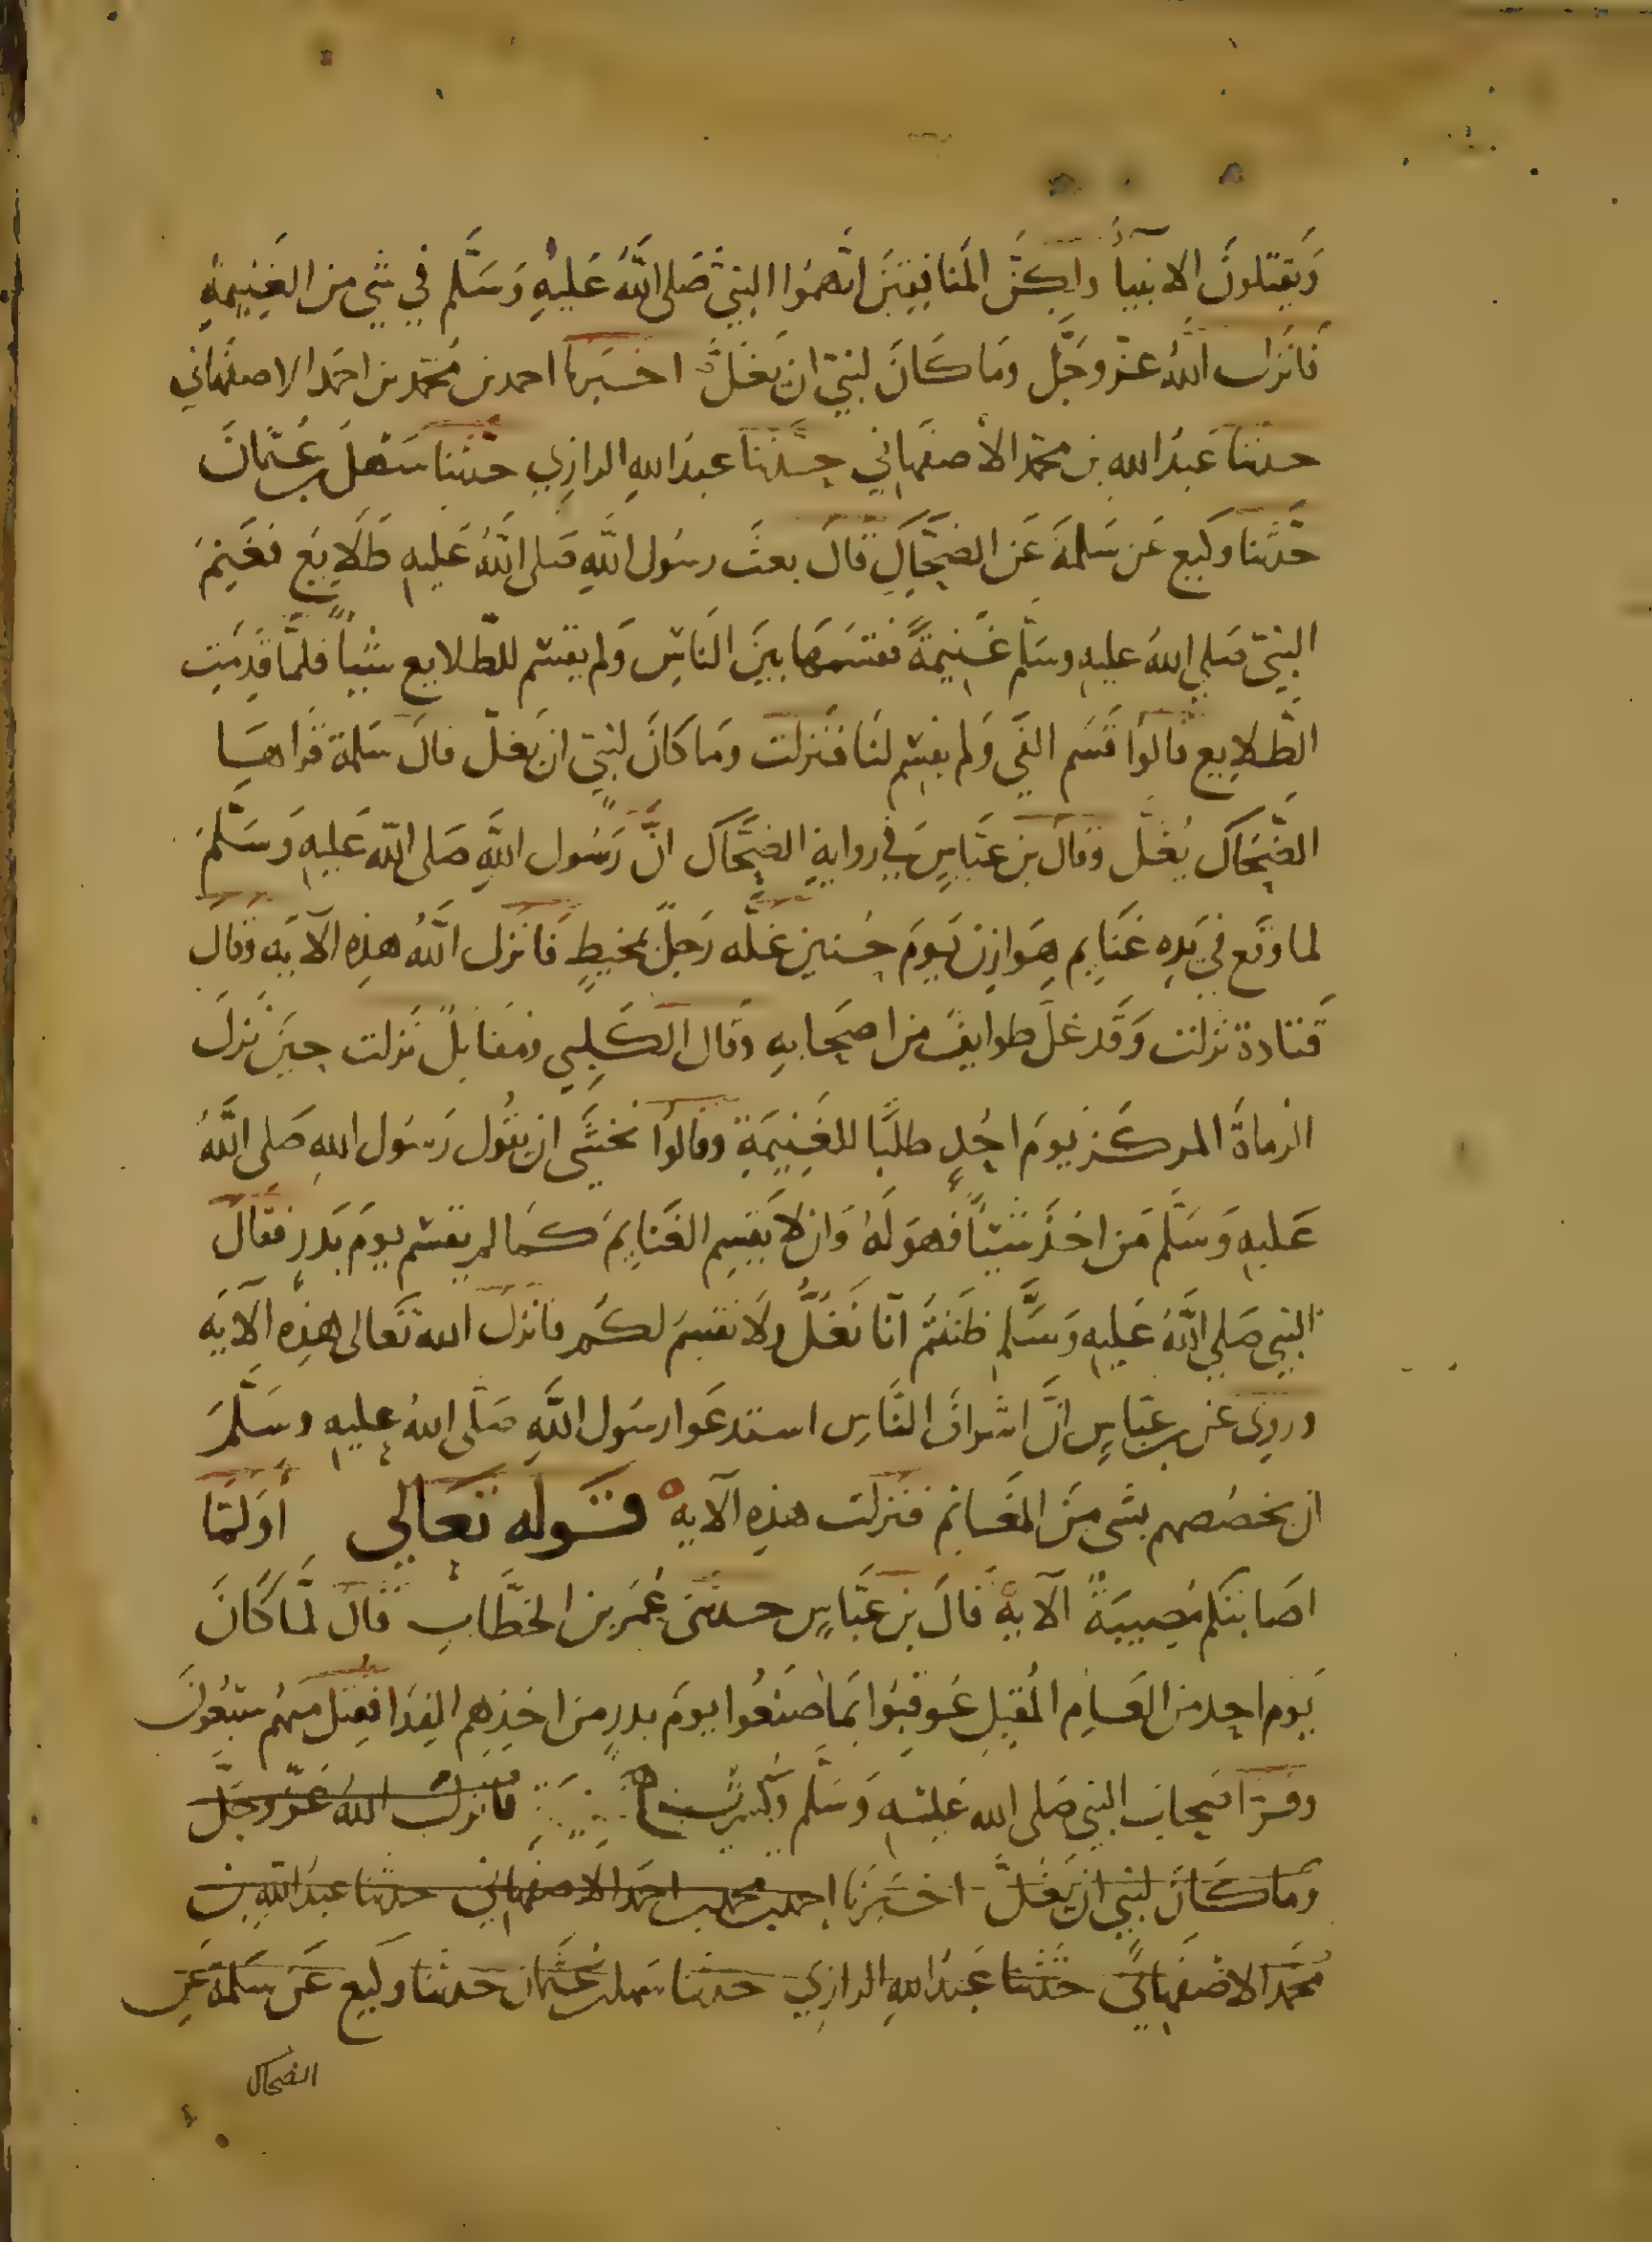 وَيقتلونَ الانبيآءَ ولكنَّ المنافقِينَ اتهمُوا النبيَّ صَلى اللهُ عَليْهِ وَسَلَّم في شيٍ من الغَنِيْمةِ
فَانزل اللهُ عزّ وجَلَّ ومَا كَانَ لنبيّ ان يَغُلَّ اخبرنا احمد بن مُحمّد بن احمَد الاصفهَاني
حدثنا عَبدُ الله بن محمّد الأصفهَاني حدثنا عبدُ اللهِ الرازي حدثنا سَهلُ بن عُثمانَ
حَدَّثنا وكيع عَن سَلمَةَ عَن الضحَّاكِ قالَ بعثَ رسُول اللهِ صَلى اللهُ عَليهِ طَلَايعَ فغَنِمَ
النبيّ صَلي اللهُ عليهِ وسَلَّم غَنيمَةً فقسَمهَا بينَ النَاسِ وَلم يقسم للطّلايع شياً فلمَّا قَدِمَت
الطّلايع قالوا قَسَم الفَي وَلم يقسِم لنَا فنَزلت ومَا كَانَ لنبيّ ان يَغلّ قالَ سَلمة قراهَا
الضّحَاك يُغَلّ وقالَ بن عَبَّاسٍ في روايةِ الضحَّاك انَّ رَسُول اللهِ صَلى الله عَليهِ وَسَلَّمَ
لما وقع في يَدِه غنَايم هَوازِن يَومَ حُنين غلّه رَجلٌ بمخيطٍ فَانزل اللهُ هذِه الآيَه وَقالَ
قَتادة نزلت وَقَد غلَّ طوايفُ من اصحَابهِ وقَال الكَلِبي ومقاتلٌ نَزلت حِينَ نزلَ
الرماةَ المركزَ يومَ احُدٍ طلبًا للغَنِيمَةِ وقالوا نخشَى ان يقُول رَسُول اللهِ صَلى اللهُ
عَليهِ وَسَلَّم مَن اخَذَ شَيْئاً فهوَ لَهُ وَان لا يقسِم الغَنايِمَ كمَا لم يقسَم يومَ بَدرٍ فقالَ
النبي صَلي اللهُ عَليهِ وسَلَّم ظَنَنتُم انّا نَغُلُّ ولَا نقسِمُ لكُم فانزلَ الله تَعالى هَذِه الآيَه
وروِى عن بن عبّاسٍ انَّ اشرافَ النَّاسِ استدعَوا رسُول اللهِ صَلّى اللهُ عليهِ وسَلَّمَ
ان يخصُصهم بشى مِنَ المغَانم فنزلت هذِه الآيه ه قوله تعَالي أوَلمَّا
اصَابتكم مُصِيبَةٌ الآيه ه قالَ بن عَبَّاسٍ حدثنى عُمَر بن الخطَّابِ قالَ لمَّا كَانَ
يَوم احدٍ من العَامِ المُقبِلِ عُوقبُوا بِمَا صَنعُوا يومَ بدرٍ من اخذِهِم الفِدَا فقتل منهُم سَبعُونَ
وفرَّ اصحاب النبي صَلى الله عَليهِ وَسَلّم وكُسِرَت فانزل اللهُ عَزّ وجَلَّ
ومَا كَانَ لنبي ان يَغُلَّ اخبَرنا احمد بن محمد بن احمَد الاصفهَاني حدثنا عبدُ اللهِ بن
مُحَمَّد الاصفهَاني حَدَّثنا عَبدُ اللهِ الرازي حدثنا سَهل بن عُثمان حدثنا وكيع عَن سَلمةَ عَن
الضحاك